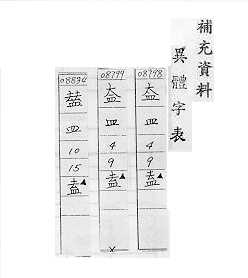 補充資料
異體字表
08798
皿
4
9
盍▲
08799
皿
4
9
盍▲
x
08834
皿
10
15
盍▲